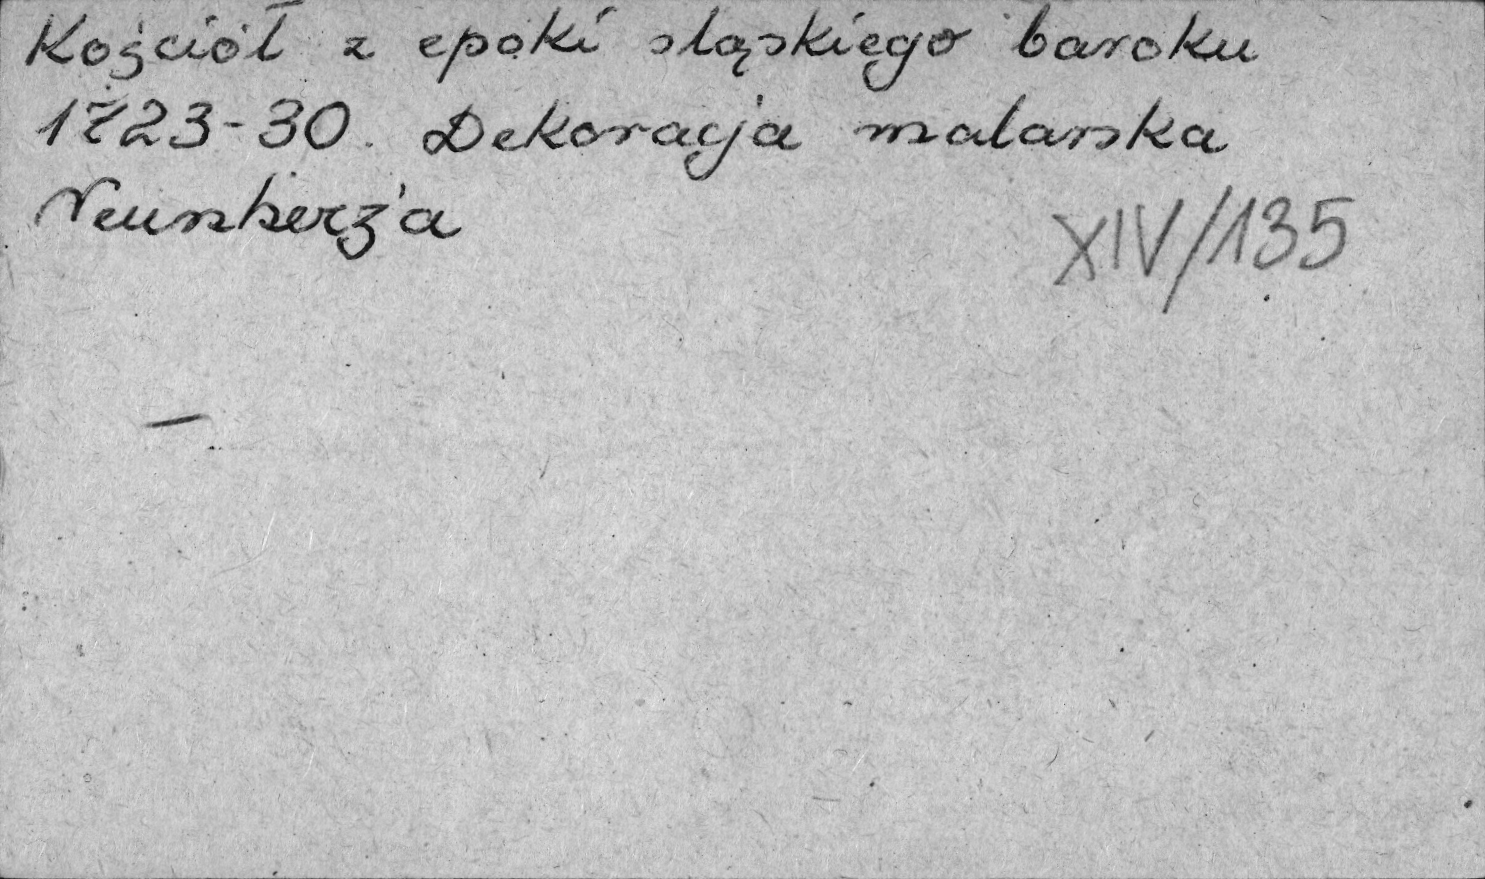 Kościół z epoki śląskiego baroku
1723-30. Dekoracja malarska
Neunherz'a
XIV/135